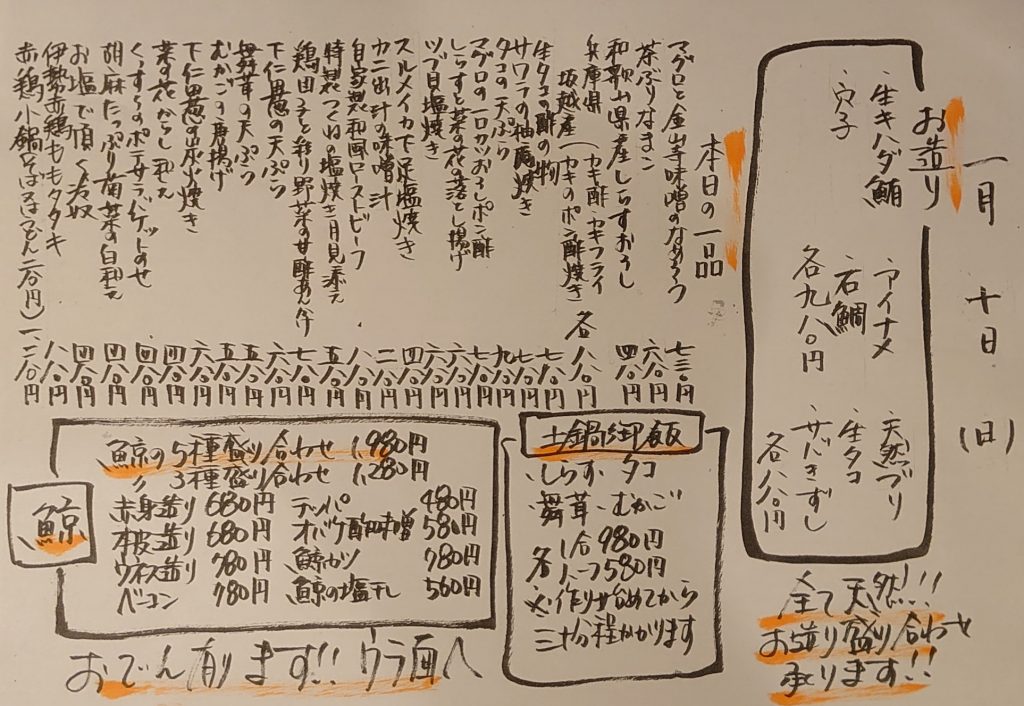 一月 十日 (日)
お造り
・生キハダ鮪 ・アイナメ ・天然ブリ
・穴子 ・石鯛 ・生タコ
各九八〇円 ・サバきずし
各八八〇円
全て天然!!!
お造り盛り合わせ
承ります!!
本日の一品
マグロと金山寺味噌のなめろう 七三〇円
茶ぶりなまこ 六八〇円
和歌山県産しらすおろし 四八〇円
兵庫県
坂越産(カキ酢・カキフライ
カキのポン酢焼き 各八八〇円
生タコの酢の物 七八〇円
サワラの柚庵焼き 七八〇円
タコの天ぷら 九八〇円
マグロの一口カツおろしポン酢 七八〇円
しらすと菜の花の落とし揚げ 六八〇円
ツブ貝塩焼き 六八〇円
スルメイカ下足塩焼き 四八〇円
カニ出汁の味噌汁 二八〇円
自家製和風ローストビーフ 八八〇円
特製つくねの塩焼き 月見添え 五八〇円
鶏団子と彩り野菜の甘酢あん 七八〇円
下仁田葱の天ぷら 六八〇円
舞茸の天ぷら 五八〇円
むかごの唐揚げ 五八〇円
下仁田葱の炭火焼き 六八〇円
菜の花からし和え 四八〇円
くんすらのポテサラ バケットのせ 四八〇円
胡麻たっぷり菊菜の白和え 四八〇円
お塩で頂く冷奴 四八〇円
伊勢赤鶏ももタタキ 八八〇円
赤鶏小鍋(そば又はうどん二八〇円) 一、二八〇円
土鍋御飯
・しらす・タコ
・舞茸・むかご
各 1合 980円
ハーフ 580円
※作り始めてから
三十分程かかります
鯨
鯨の5種盛り合わせ 1,980円
〃 3種盛り合わせ 1,280円
赤身造り 680円 テッパ 480円
本皮造り 680円 オバケ酢味噌 580円
ウネス造り 780円 鯨カツ 780円
ベーコン 780円 鯨の塩干し 560円
おでん有ります!! ウラ面へ